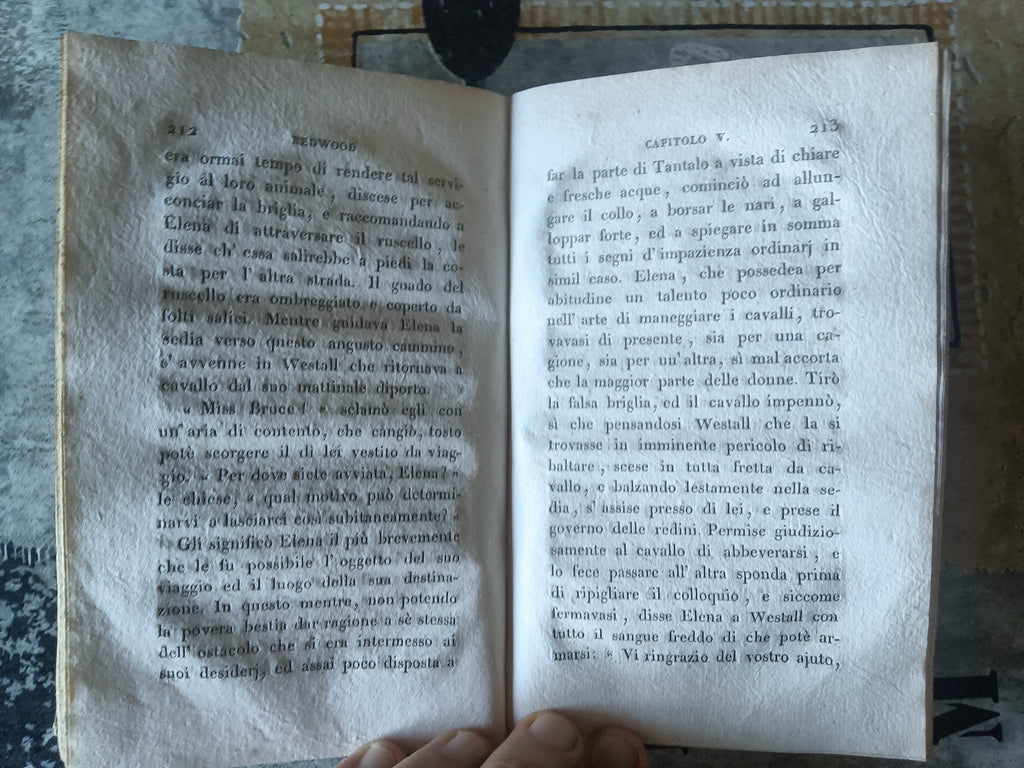 212
REDWOOD
era ormai tempo di rendere tal servi-
gio al loro animale, discese per ac-
conciar la briglia, e raccomandando a
Elena di attraversare il ruscello, le
disse ch' essa salirebbe a piedi la co-
sta per l' altra strada. Il guado del
ruscello era ombreggiato e coperto da
folti salici. Mentre guidava Elena la
sedia verso questo angusto cammino,
s' avvenne in Westall che ritornava a
cavallo dal suo mattinale diporto.
« Miss Bruce! » sclamò egli con
un' aria di contento, che cangiò, tosto
potè scorgere il di lei vestito da viag-
gio. « Per dove siete avviata, Elena? »
le chiese, « qual motivo può determi-
narvi a lasciarci così subitaneamente? »
Gli significò Elena il più brevemente
che le fu possibile l' oggetto del suo
viaggio ed il luogo della sua destina-
zione. In questo mentre, non potendo
la povera bestia dar ragione a sè stessa
dell' ostacolo che si era intermesso ai
suoi desiderj, ed assai poco disposta a
CAPITOLO V.
213
far la parte di Tantalo a vista di chiare
e fresche acque, cominciò ad allun-
gare il collo, a borsar le nari, a gal-
loppar forte, ed a spiegare in somma
tutti i segni d' impazienza ordinarj in
simil caso. Elena, che possedea per
abitudine un talento poco ordinario
nell' arte di maneggiare i cavalli, tro-
vavasi di presente, sia per una ca-
gione, sia per un' altra, sì mal accorta
che la maggior parte delle donne. Tirò
la falsa briglia, ed il cavallo impennò,
sì che pensandosi Westall che la si
trovasse in imminente pericolo di ri-
baltare, scese in tutta fretta da ca-
vallo, e balzando lestamente nella se-
dia, s' assise presso di lei, e prese il
governo delle redini. Permise giudizio-
samente al cavallo di abbeverarsi, e
lo fece passare all' altra sponda prima
di ripigliare il colloquio, e siccome
fermavasi, disse Elena a Westall con
tutto il sangue freddo di che potè ar-
marsi: « Vi ringrazio del vostro ajuto,